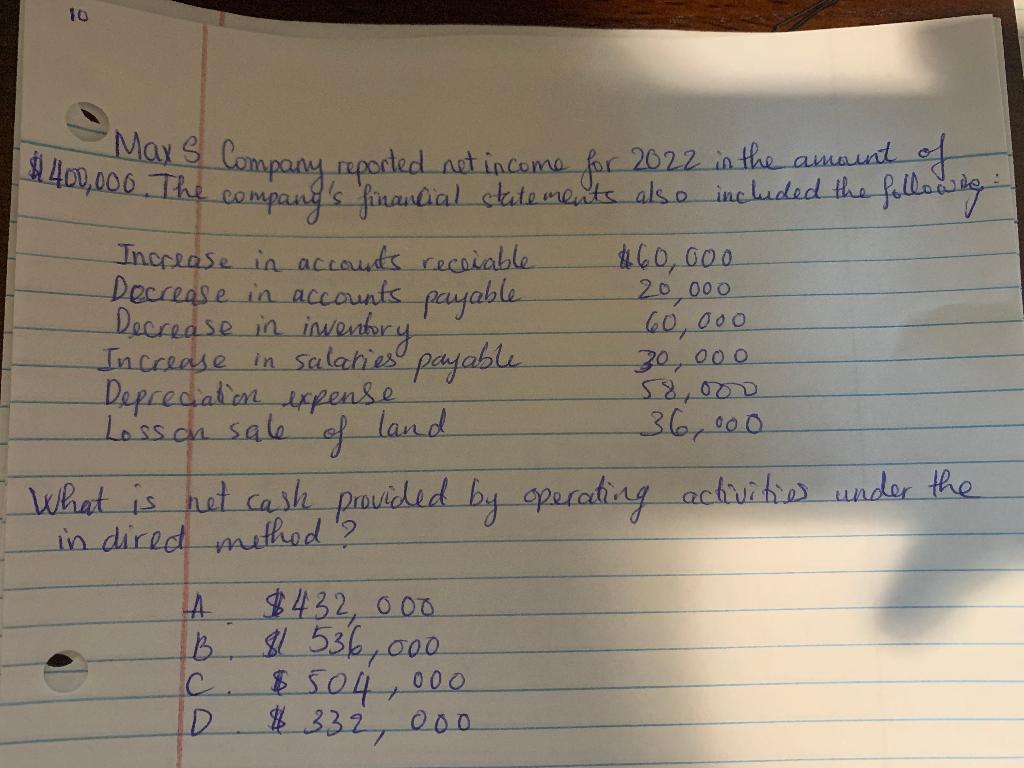 10
Max S Company reported net income for 2022 in the amount of
$400,000. The company's financial statements also included the following:
Increase in accounts receiable $60,000
Decrease in accounts payable 20,000
Decrease in inventory 60,000
Increase in salaries payable 30,000
Depreciation expense 58,000
Loss on sale of land 36,000
What is net cash provided by operating activities under the
in direct method?
A. $432,000
B. $ 536,000
C. $ 504,000
D. $ 332,000